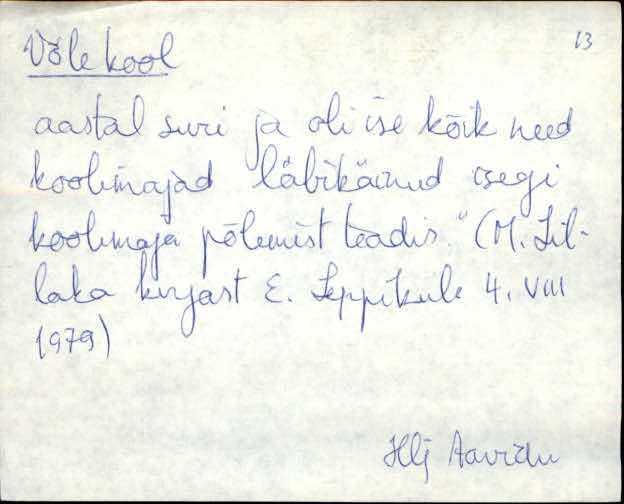 Võle kool 13
aastal suri ja oli ise kõik need
koolimajad läbikäinud isegi
koolimaja põlemist teadis." (M. Lil-
laka kirjast E. Leppikule 4. VIII
1979)
Hlj Aavidu